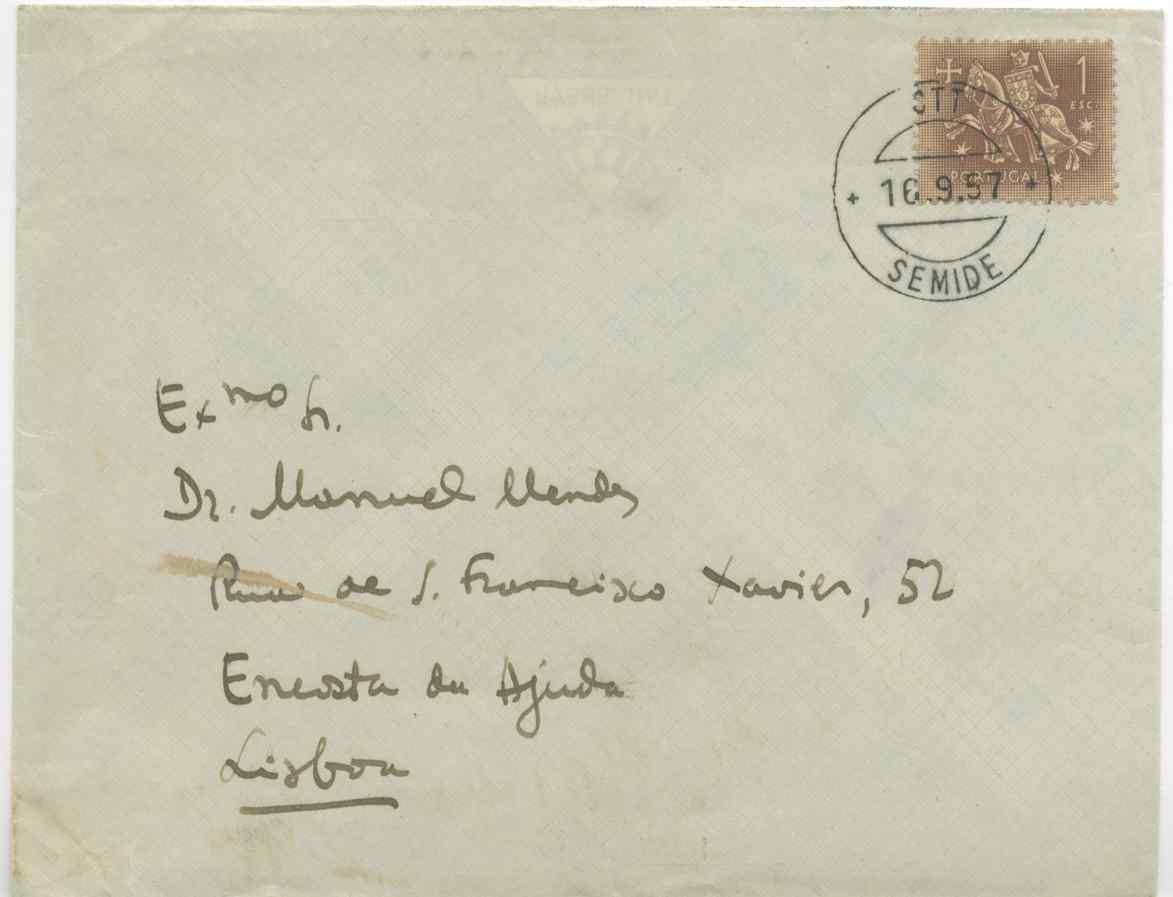 1
ESC.
PORTUGAL
CTT
16.9.57
SEMIDE
Exmo Sr.
Dr. Manuel Mendes
Rua de S. Francisco Xavier, 52
Encosta da Ajuda
Lisboa